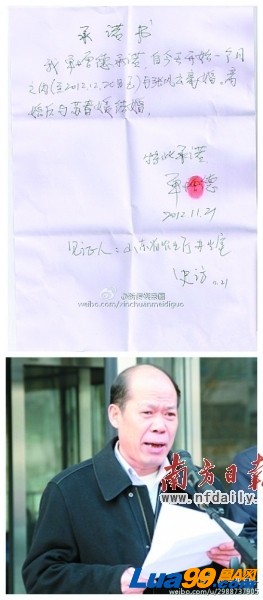 承诺书
我单增德承诺,自今天开始一个月
之内(至2012.12.20日止)与离婚。离
婚后与苏春媛结婚。
特此承诺
单增德
2012.11.21
见证人:山东省农业厅
11.21
weibo.com/xinchuanmeidiguo
南方日报
www.nfdaily.
Lua99
weibo.com/u/2988737905